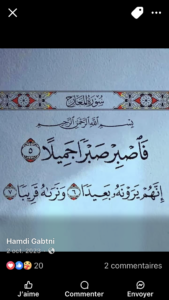 سورة المعارج
بسم الله الرحمن الرحيم
فَاصْبِرْ صَبْرًا جَمِيلًا ٥
إِنَّهُمْ يَرَوْنَهُ بَعِيدًا ٦ وَنَرَاهُ قَرِيبًا ٧
Hamdi Gabtni
2 oct. 2023
20
2 commentaires
J'aime
Commenter
Envoyer